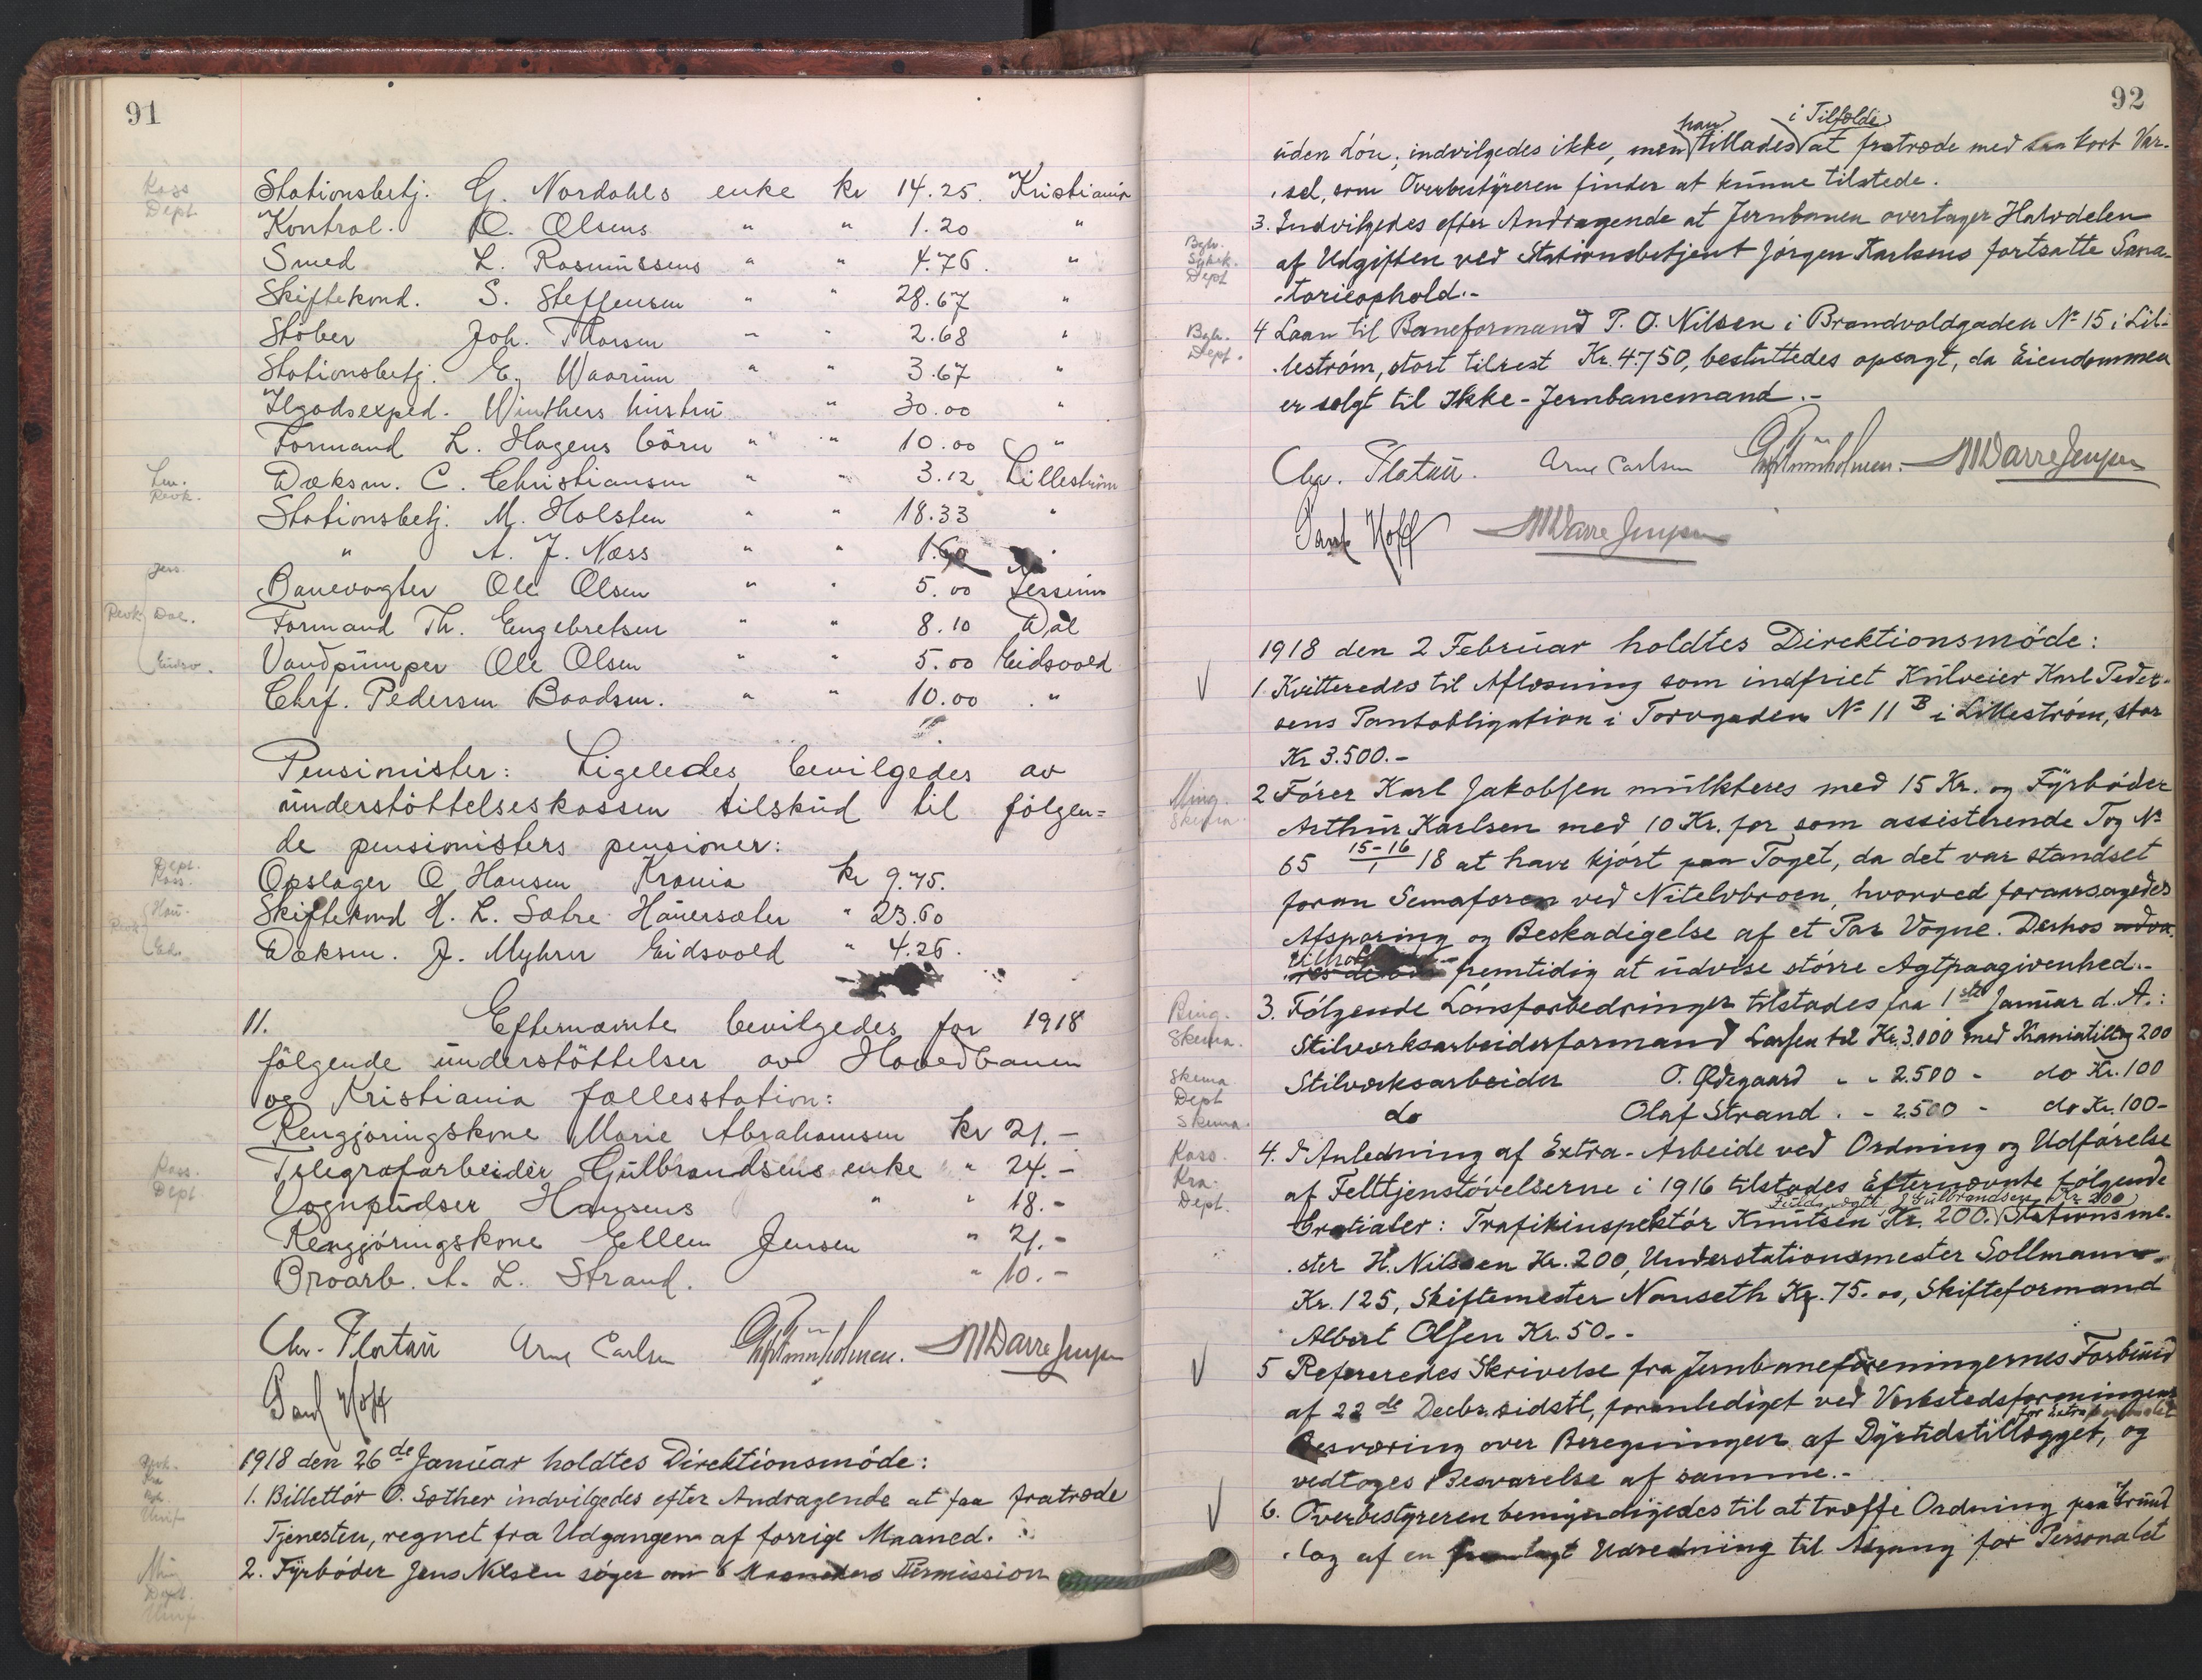 91
Kass
Dept.
Stationsbetj. G. Nordahls enke kr 14.25. Kristiania
Kontrol. O. Olsens " " 1.20 "
Smed L. Rasmussens " " 4.76. "
Skiftekond. S. Steffensen " " 28.67 "
Støber Joh. Thorsen " " 2.68 "
Stationsbetj. E. Waarum " " 3.67 "
Ilgodsexped. Winthers hustru " 30.00 "
Formand L. Hagens börn " " 10.00 "
Lm.
Revk.
Væksm. C. Christiansen " " 3.12 Lilleström
Stationsbetj. M. Holsten " " 18.33 "
" A. J. Næss " " 1.60 "
Jess.
Banevogter Ole Olsen " " 5.00 Jessum
Revk. Dal.
Formand Th. Engebretsen " " 8.10 Dal
Eidsv.
Vandpumper Ole Olsen " " 5.00 Eidsvold
Chrf. Pedersen Baadsm. " " 10.00 "
Pensionister: Ligeledes bevilgedes av
understöttelseskassen tilskud til følgen=
de pensionisters pensioner:
Dept.
Kass.
Opslager O Hansen Krania kr 9.75.
Hau.
Skiftekond H. L. Sætre Hauersæter " 23.60
Revk
Eid.
Væksm. J. Myhrer Eidsvold " 4.26.
11. Efternævnte bevilgedes for 1918
følgende understöttelser av Hovedbanen
og Kristiania fællesstation:
Rengjøringskone Marie Abrahamsen kr 21.-
Kass.
Dept.
Telegrafarbeider Gulbrandsens enke " 24.-
Vognpudser Hansens " " 18.-
Rengjøringskone Ellen Jensen " 21.-
Broarb. A. L. Strand. " 10.-
Chr. Flotau Arne Carlsen MWarre Jensen
Paul Hoff
1918 den 26de Januar holdtes Direktionsmøde:
1. Billettør O. Sæther indvilgedes efter Andragende at faa fratræde
Tjenesten, regnet fra Udgangen af forrige Maaned.
2. Fyrbøder Jens Nilsen søger om 6 Maaneders Permission
92
han i Tilfælde
uden Løn; indvilgedes ikke, men tillades at fratræde med saa kort Var-
sel, som Overbestyreren finder at kunne tilstede.
3. Indvilgedes efter Andragende at Jernbanen overtager Halvdelen
Sykek.
Dept
af Udgiften ved Stationsbetjent Jørgen Karlsens fortsatte Sana-
torieophold.-
4 Laan til Baneformand P. O. Nilsen i Brandvoldgaden No 15 i Lil-
Dept.
leström, stort tilrest Kr. 4.750, besluttedes opsagt, da Eiendommen
er solgt til Ikke-Jernbanemand.-
Chr. Flotau. Arne Carlsen MWarre Jensen
Paul Hoff MWarre Jensen
1918 den 2 Februar holdtes Direktionsmøde:
1. Kvitteredes til Aflæsning som indfriet Kulveier Karl Peder-
sens Pantobligation i Torvgaden No 11 B i Lilleström, stor
Kr 3.500.-
Ming.
Skema.
2 Fører Karl Jakobsen mulkteres med 15 Kr. og Fyrbøder
Arthur Karlsen med 10 Kr. for som assisterende Tog No
65 15-16/1 18 at have kjørt paa Toget, da det var standset
foran Semaforen ved Nitelvbroen, hvorved foraarsagedes
Afsporing og Beskadigelse af et Par Vogne. Derhos
fremtidig at udvise større Agtpaagivenhed.-
Ring.
Skema.
3. Følgende Lønsforbedringer tilstades fra 1ste Januar d. A.:
Stilverksarbeiderformand Larsen til Kr. 3.000 med Kraniatillæg 200
Skema
Dept
Stilverksarbeider O. Ødegaard " - 2.500 - do Kr. 100
Skema.
do Olaf Strand. - 2500 - do Kr. 100-
Kass.
Kra.
Dept.
4. I Anledning af Extra-Arbeide ved Ordning og Udførelse
af Felttjenstøvelserne i 1916 tilstodes Efternævnte følgende
Fuldm. Gulbrandsen Kr. 200
Gratialer: Trafikinspektør Knutsen Kr. 200. Stationsme-
ster H. Nilssen Kr. 200, Understationsmester Sollmann
Kr. 125, Skiftemester Nauseth Kr. 75.00, Skifteformand
Albert Olsen Kr. 50.-
5 Refereredes Skrivelse fra Jernbaneforeningernes Forbund
af 22de Decbr. sidstl, foranlediget ved Verkstedsforeningens
for Extrapersonalet
Besværing over Beregningen af Dyrtidstillægget, og
vedtoges Besvarelse af samme.-
6. Overbestyreren bemyndigedes til at træffe Ordning paa Grund
lag af en fremlagt Udredning til Adgang for Personalet